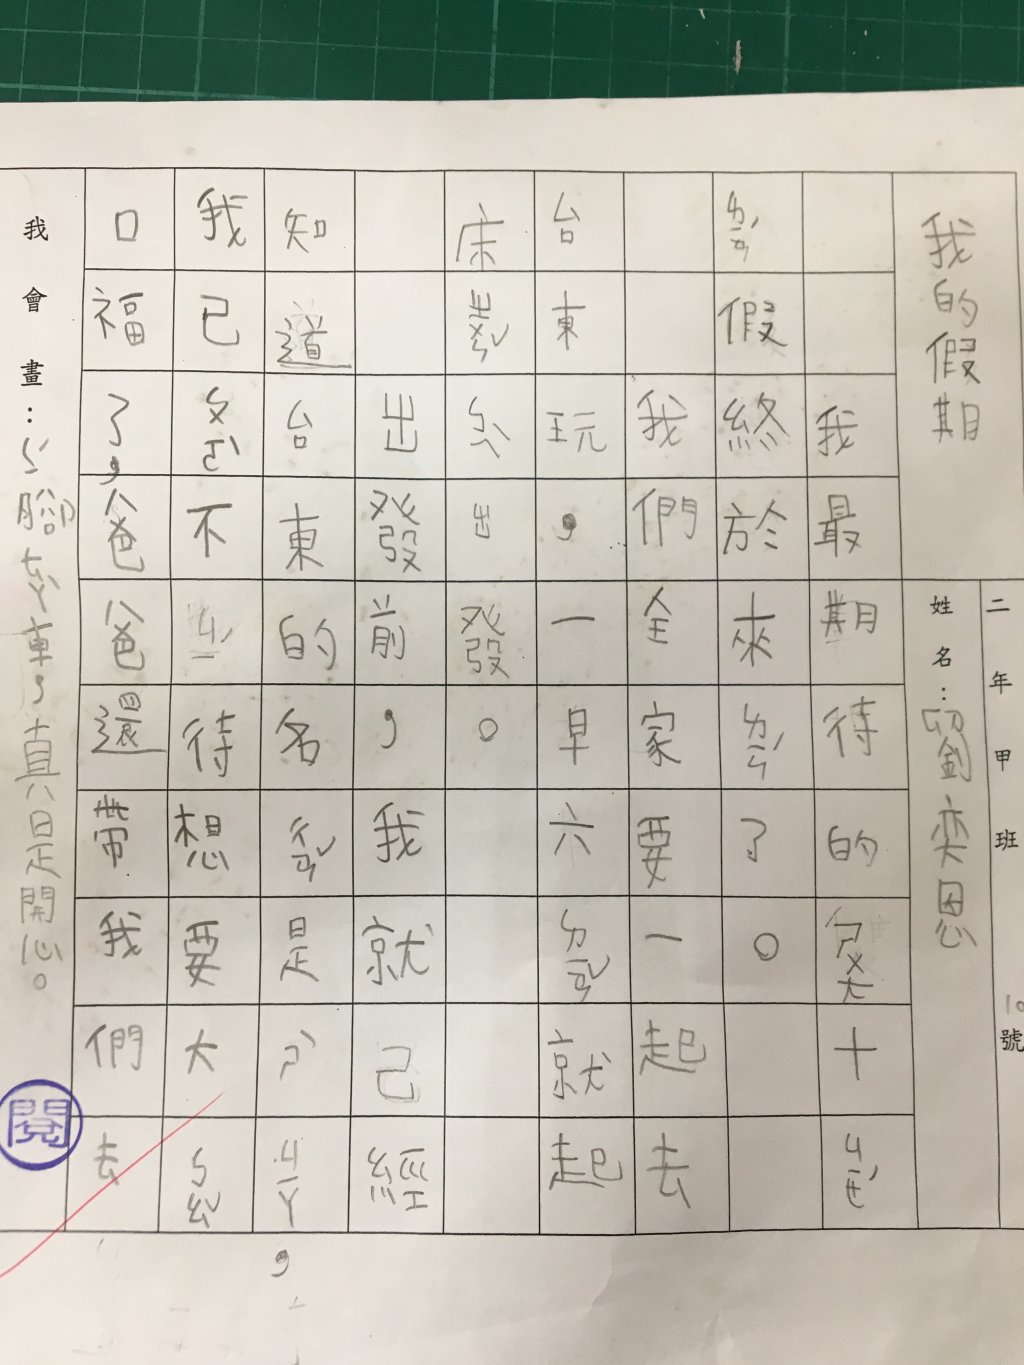 我的假期
二年甲班 10號
姓名：劉奕恩
我最期待的ㄕㄨㄤ十ㄐㄧㄝˊ
ㄌㄧㄢˊ假終於來ㄌㄧㄣˊ了。
我們全家要一起去
台東玩，一早六ㄉㄧㄢˇ就起
床ㄓㄨㄣˇㄅㄟˋ出發。
出發前，我就己經
知道台東的名ㄔㄢˇ是ㄕˋㄐㄧㄚ，
我已ㄆㄛˋ不ㄐㄧˊ待想要大ㄅㄠˇ
口福了，爸爸還帶我們去
我會畫：腳ㄊㄚˋ車，真是開心。
閱